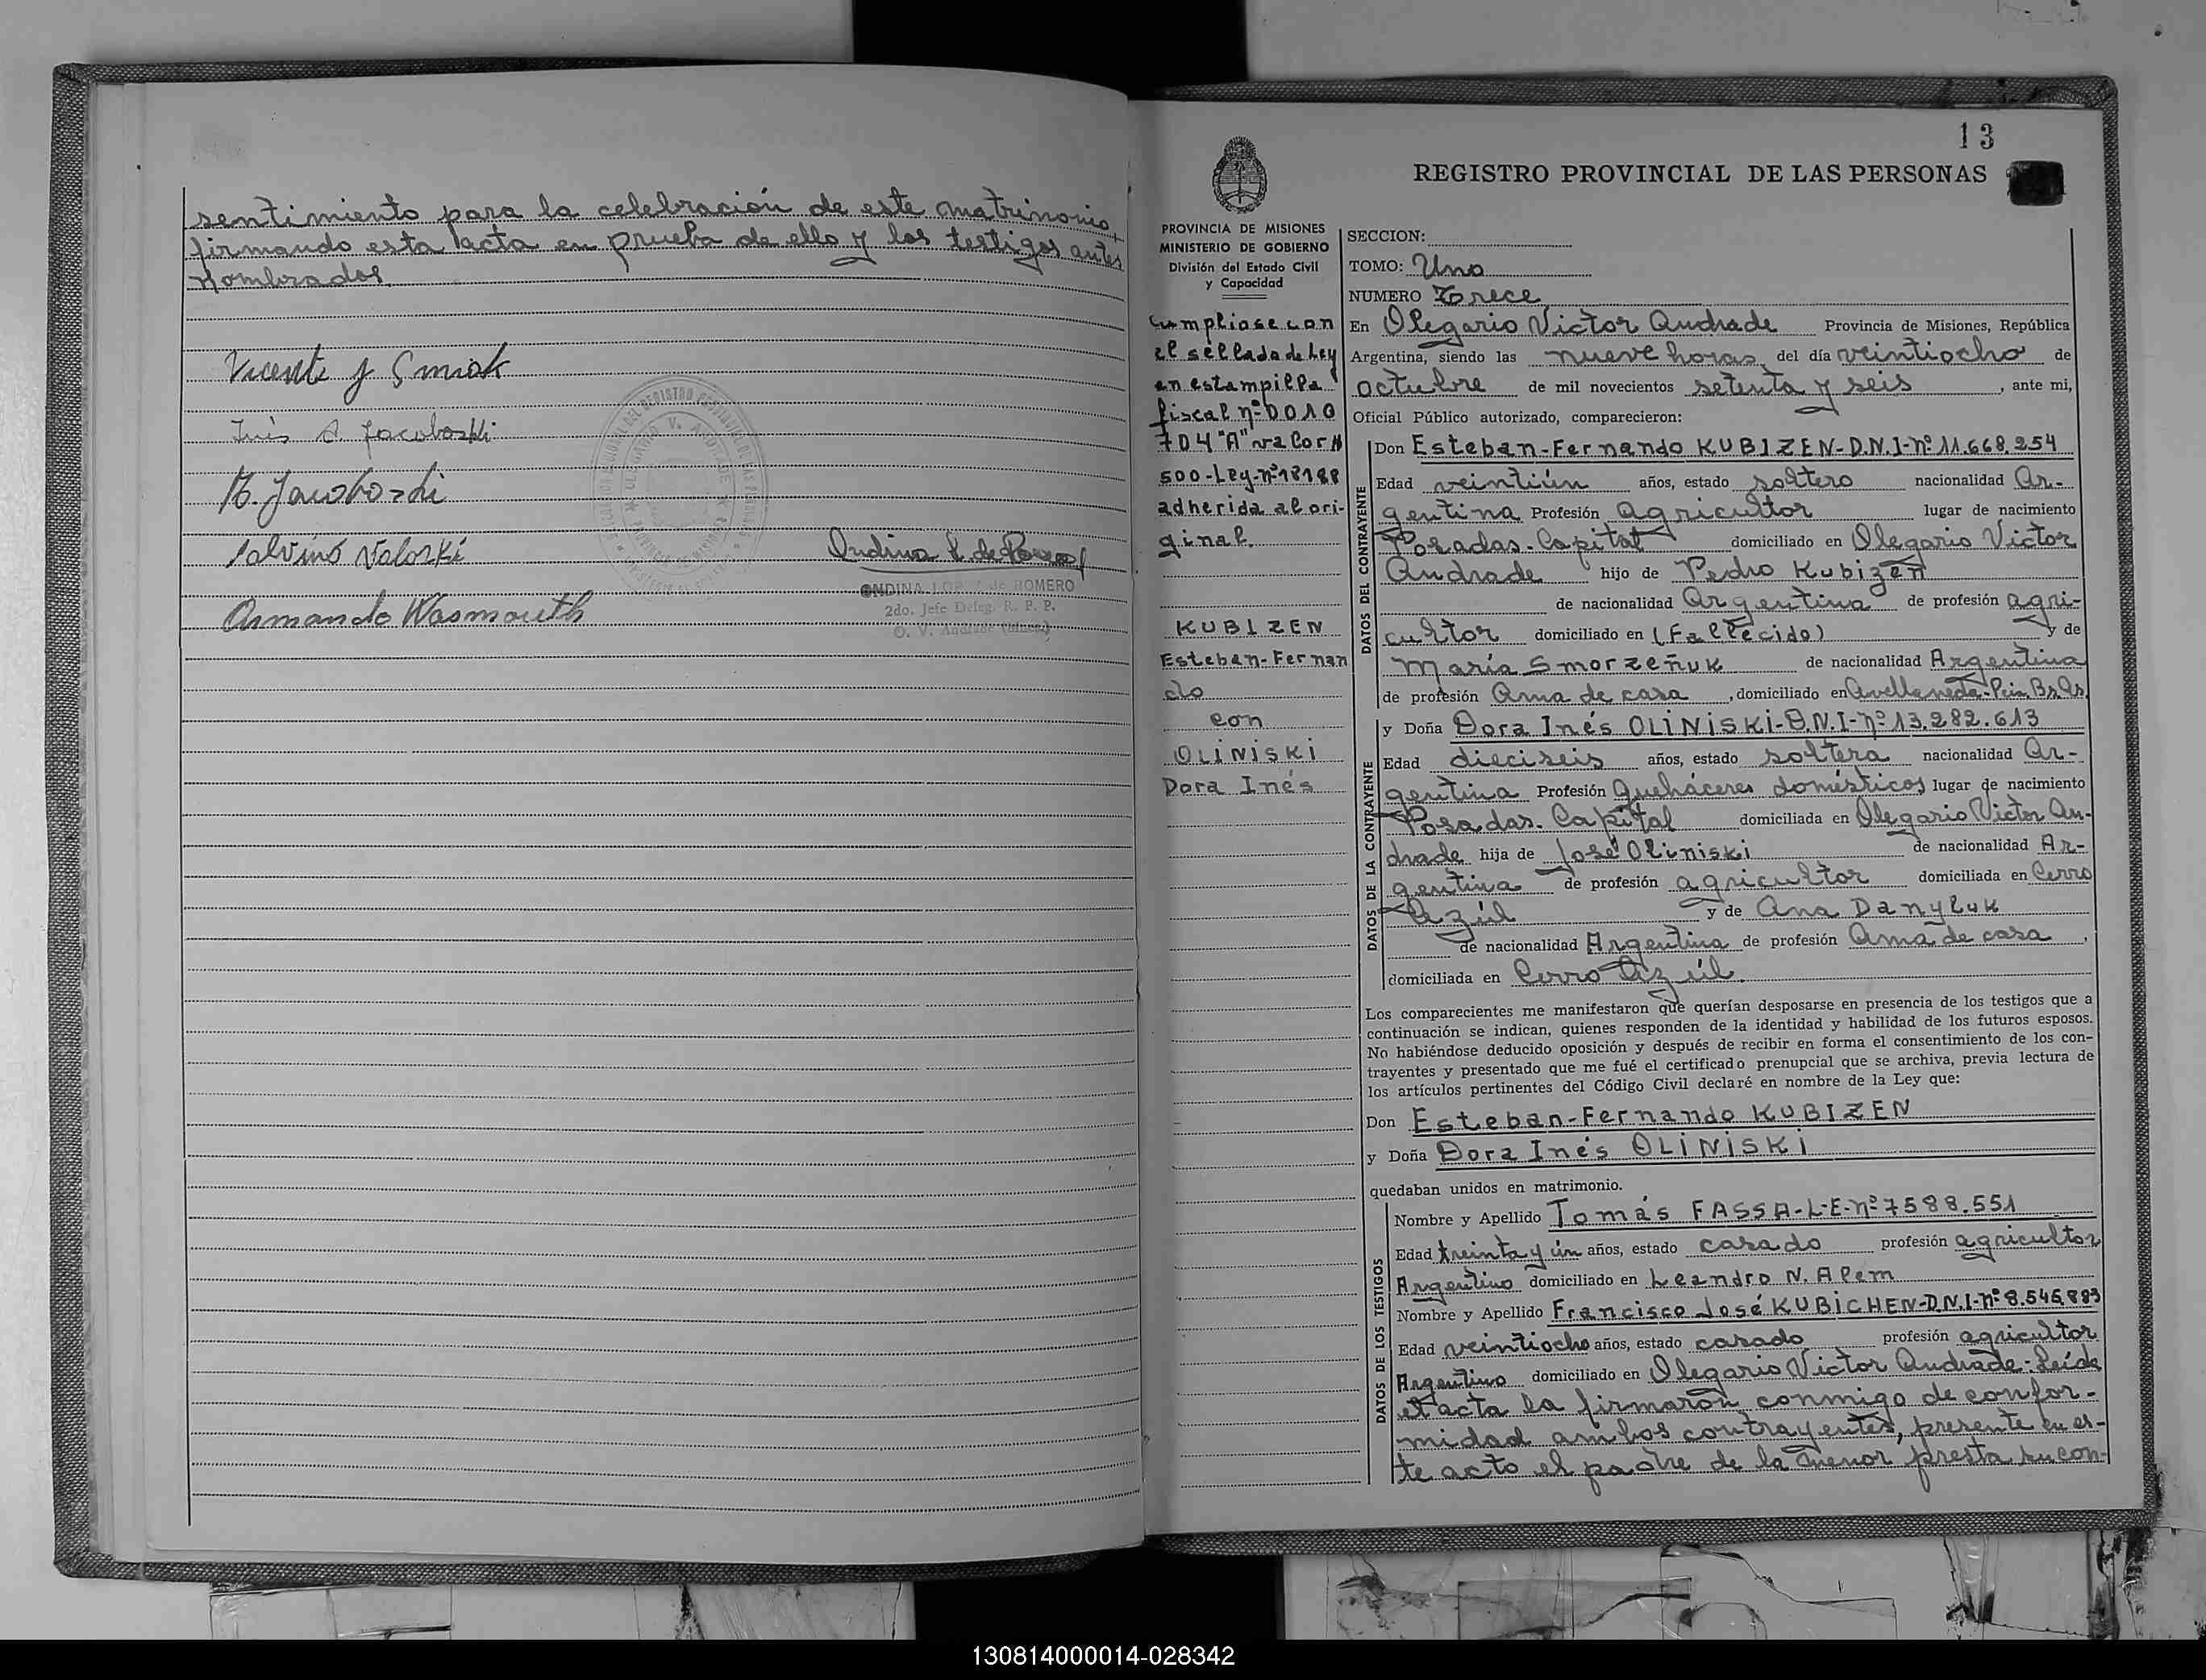 sentimiento para la celebración de este matrimonio,
firmando esta acta en prueba de ello y los testigos antes
nombrados.
Vicente J Smiak
Inés A. Jacoboski
Salvino Valoski
ONDINA LOPEZ de ROMERO
2do. Jefe Deleg. R. P. P.
O. V. Andrade (Mnes.)
Armando Wasmouth
13
REGISTRO PROVINCIAL DE LAS PERSONAS
PROVINCIA DE MISIONES
MINISTERIO DE GOBIERNO
División del Estado Civil
y Capacidad
Cumpliose con
el sellado de Ley
en estampilla
fiscal nº 0010
704 "A" valor $
500-Ley-nº 18188
adherida al ori-
ginal.
KUBIZEN
Esteban-Fernan
do
con
OLINISKI
Dora Inés
SECCION:
TOMO: Uno
NUMERO Trece
En Olegario Victor Andrade Provincia de Misiones, República
Argentina, siendo las nueve horas del día veintiocho de
octubre de mil novecientos setenta y seis, ante mi,
Oficial Público autorizado, comparecieron:
DATOS DEL CONTRAYENTE
Don Esteban-Fernando KUBIZEN-D.N.I-nº 11.668.254
Edad veintiún años, estado soltero nacionalidad Ar-
gentina Profesión Agricultor lugar de nacimiento
Posadas-Capital domiciliado en Olegario Victor
Andrade hijo de Pedro Kubizen
de nacionalidad Argentina de profesión agri-
cultor domiciliado en (Fallecido) y de
María Smorzeñuk de nacionalidad Argentina
de profesión Ama de casa, domiciliado en Avellaneda-Pcia Bs.As.
DATOS DE LA CONTRAYENTE
y Doña Dora Inés OLINISKI-D.N.I-nº 13.282.613
Edad dieciseis años, estado soltera nacionalidad Ar-
gentina Profesión Queháceres domésticos lugar de nacimiento
Posadas-Capital domiciliada en Olegario Victor An-
drade hija de José Oliniski de nacionalidad Ar-
gentina de profesión agricultor domiciliada en Cerro
Azúl y de Ana Danyluk
de nacionalidad Argentina de profesión Ama de casa,
domiciliada en Cerro Azúl.
Los comparecientes me manifestaron que querían desposarse en presencia de los testigos que a
continuación se indican, quienes responden de la identidad y habilidad de los futuros esposos.
No habiéndose deducido oposición y después de recibir en forma el consentimiento de los con-
trayentes y presentado que me fué el certificado prenupcial que se archiva, previa lectura de
los artículos pertinentes del Código Civil declaré en nombre de la Ley que:
Don Esteban-Fernando KUBIZEN
y Doña Dora Inés OLINISKI
quedaban unidos en matrimonio.
DATOS DE LOS TESTIGOS
Nombre y Apellido Tomás FASSA-L-E-nº 7588.551
Edad treinta y ún años, estado casado profesión agricultor
Argentino domiciliado en Leandro N. Alem
Nombre y Apellido Francisco José KUBICHEN-D.N.I-nº 8.545.883
Edad veintiocho años, estado casado profesión agricultor
Argentino domiciliado en Olegario Victor Andrade-Leída
el acta la firmaron conmigo de confor-
midad ambos contrayentes, presente en es-
te acto el padre de la menor presta su con-
130814000014-028342